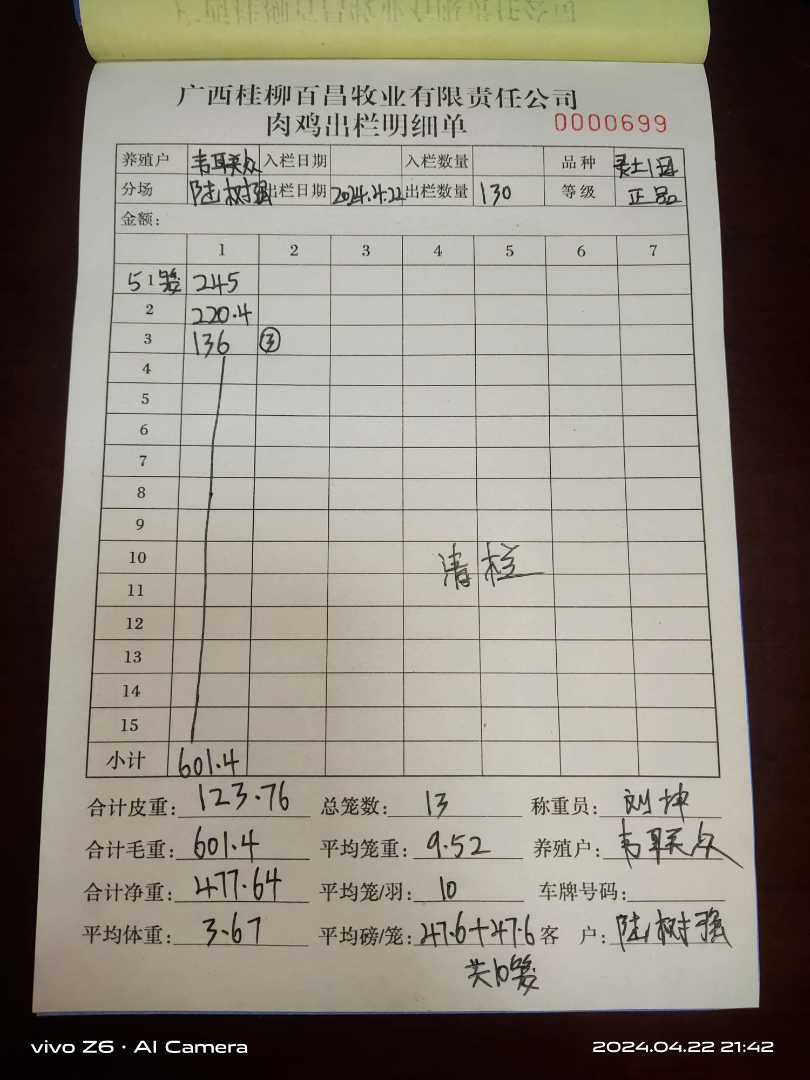 广西桂柳百昌牧业有限责任公司
肉鸡出栏明细单 0000699
养殖户 韦联众 入栏日期 入栏数量 品种 灵土1母
分场 陆树强 出栏日期 2024.4.22 出栏数量 130 等级 正品
金额:
1 2 3 4 5 6 7
5 1 笼 245
2 220.4
3 136 ③
4
5
6
7
8
9
10 清栏
11
12
13
14
15
小计 601.4
合计皮重: 123.76 总笼数: 13 称重员: 刘坤
合计毛重: 601.4 平均笼重: 9.52 养殖户: 韦联众
合计净重: 477.64 平均笼/羽: 10 车牌号码:
平均体重: 3.67 平均磅/笼: 47.6+47.6 客 户: 陆树强
共10笼
vivo Z6 · AI Camera 2024.04.22 21:42